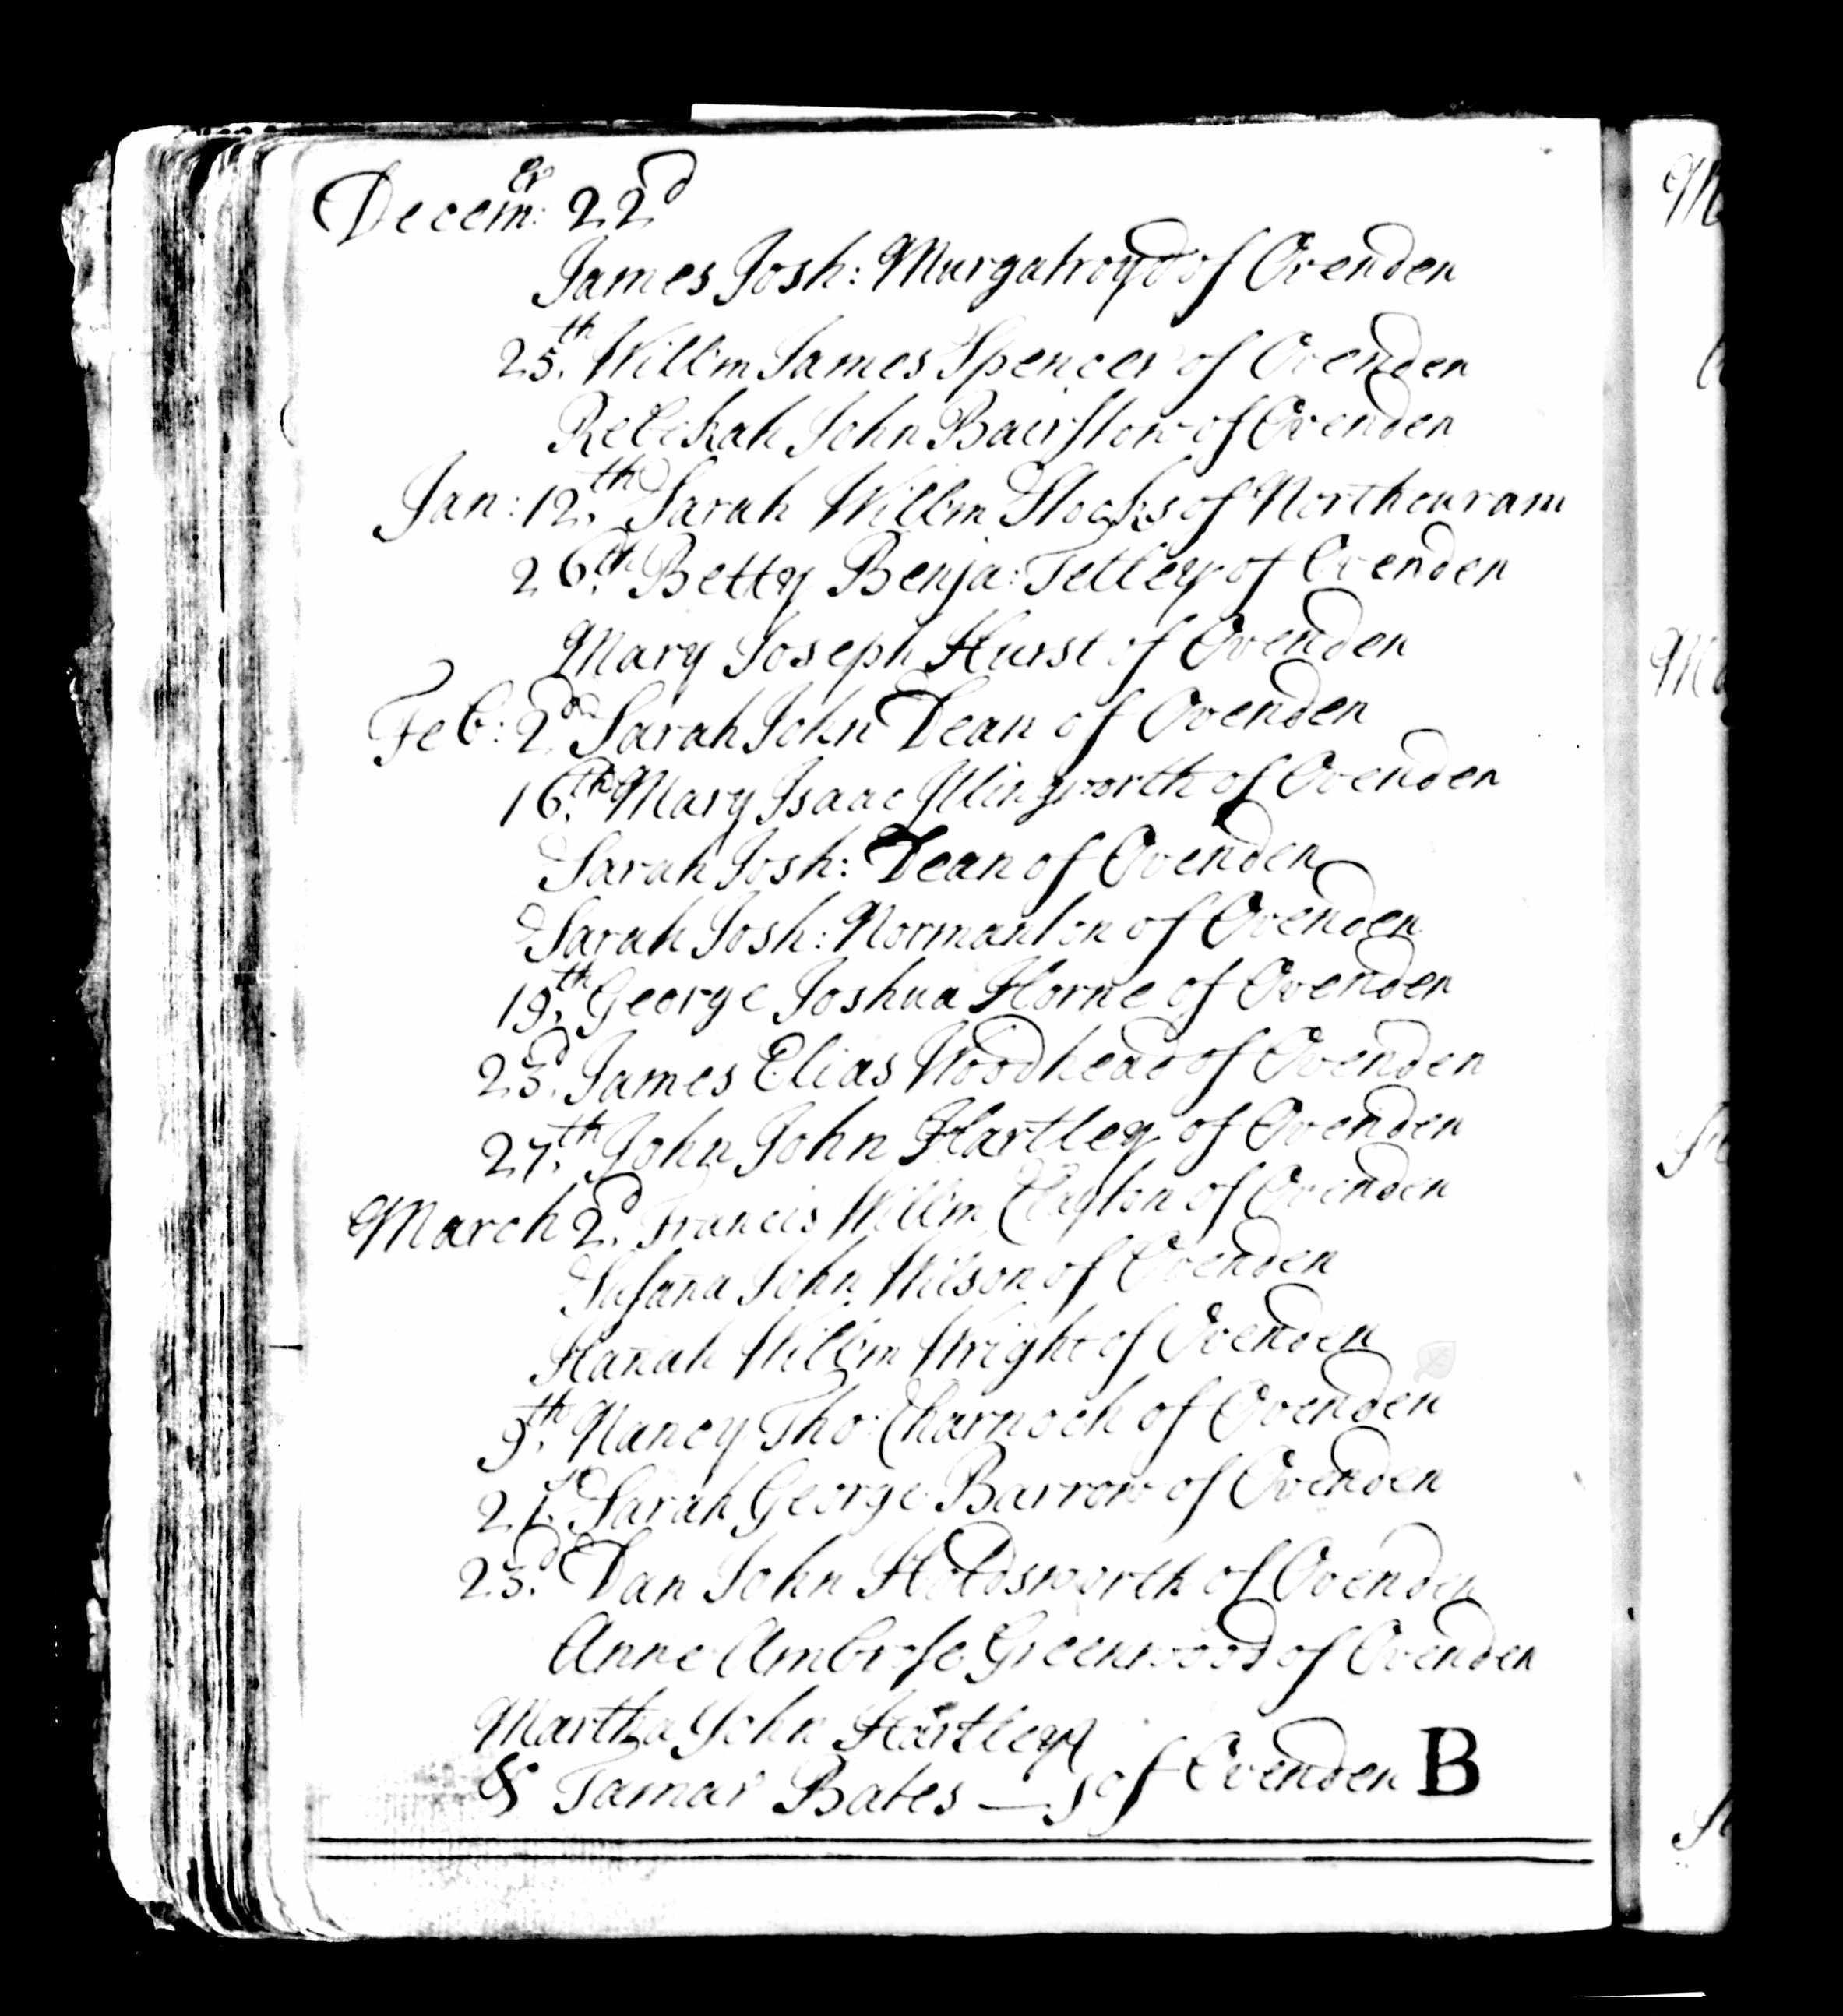 Decem:er 22d
James Josh: Murgatroyd of Ovenden
25.th Willm James Spencer of Ovenden
Rebekah John Bairstow of Ovenden
Jan: 12.th Sarah Willm Stocks of Northouram
26.th Betty Benja: Tetley of Ovenden
Mary Joseph Hurst of Ovenden
Feb: 2.d Sarah John Dean of Ovenden
16.th Mary Isaac Illingworth of Ovenden
Sarah Josh: Dean of Ovenden
Sarah Josh: Normanton of Ovenden
19.th George Joshua Horne of Ovenden
23.d James Elias Woodhead of Ovenden
27.th John John Hartley of Ovenden
March 2.d Francis Willm Clayton of Ovenden
Susan̄a John Wilson of Ovenden
Han̄ah Willm Wright of Ovenden
9.th Nancy Tho: Charnock of Ovenden
21.st Sarah George Barrow of Ovenden
23.d Dan John Holdsworth of Ovenden
Anne Ambrose Greenwood of Ovenden
Martha John Hartley
& Tamar Bates — of Ovenden B